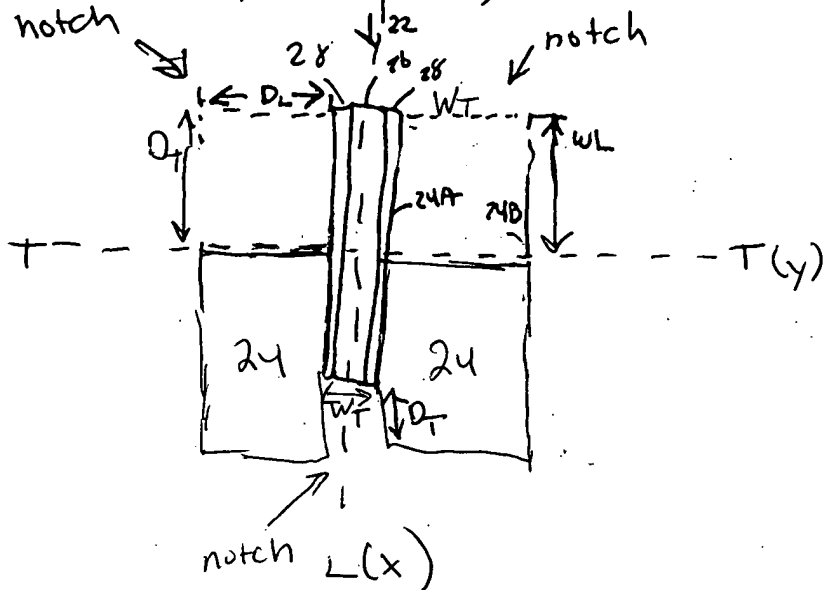 22
notch
notch
28 26 28
DL
WT
DT
WL
24A
24B
T
T (y)
24
24
WT
DT
notch
L(x)